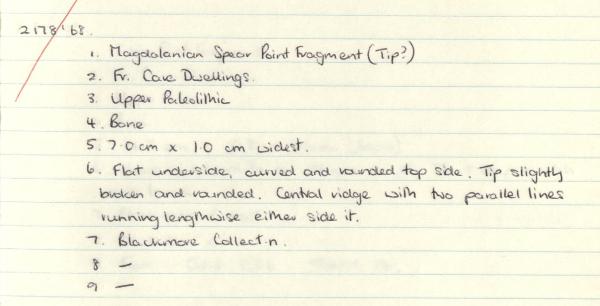 2178'68.
1. Magdalanian Spear Point Fragment (Tip?)
2. Fr. Cave Dwellings.
3. Upper Paleolithic
4. Bone
5. 7.0 cm x 1.0 cm widest.
6. Flat underside, curved and rounded top side. Tip slightly
broken and rounded. Central ridge with two parallel lines
running lengthwise either side it.
7. Blackmore Collect'n.
8 —
9 —